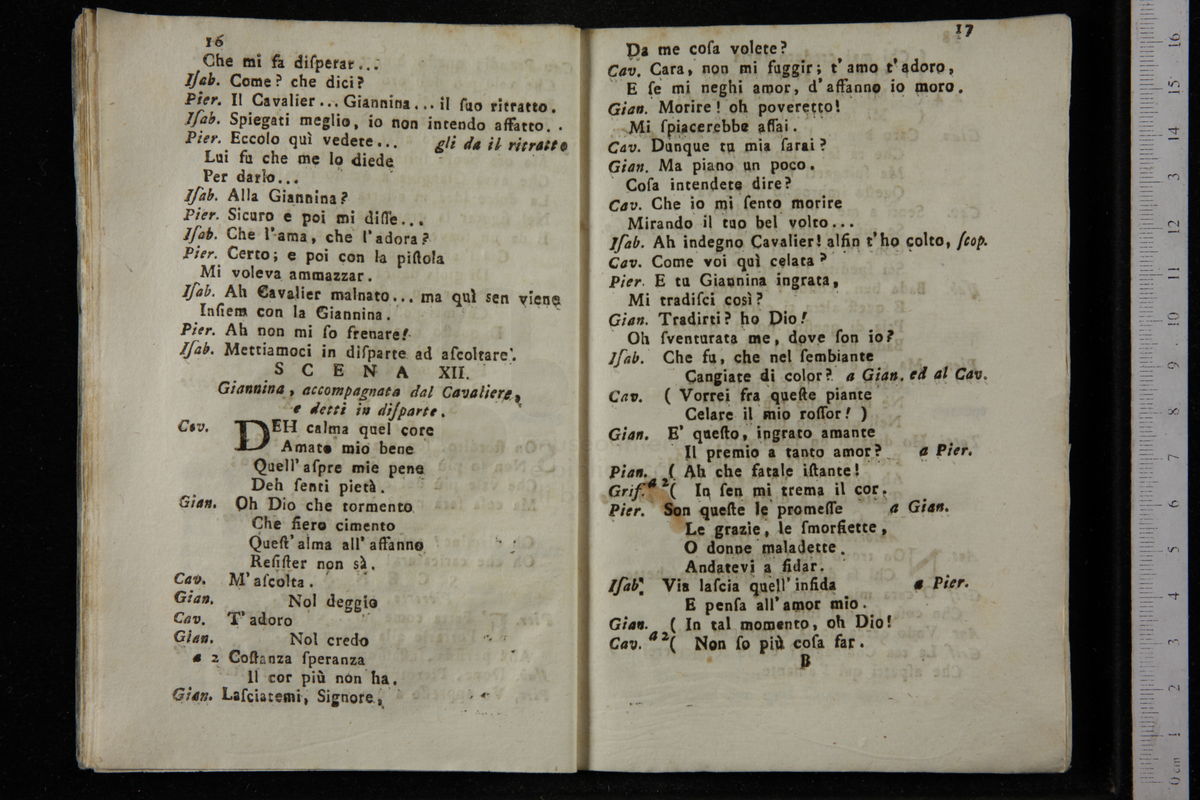 16
Che mi fa diſperar...
Iſab. Come? che dici?
Pier. Il Cavalier... Giannina... il ſuo ritratto.
Iſab. Spiegati meglio, io non intendo affatto. .
Pier. Eccolo quì vedete... gli da il ritratto
Lui fu che me lo diede
Per darlo...
Iſab. Alla Giannina?
Pier. Sicuro e poi mi diſſe...
Iſab. Che l'ama, che l'adora?
Pier. Certo; e poi con la piſtola
Mi voleva ammazzar.
Iſab. Ah Cavalier malnato... ma quì sen viene
Inſiem con la Giannina.
Pier. Ah non mi ſo frenare!
Iſab. Mettiamoci in diſparte ad aſcoltare.
SCENA XII.
Giannina, accompagnata dal Cavaliere,
e detti in diſparte.
Cav. DEH calma quel core
Amato mio bene
Quell'aſpre mie pene
Deh ſenti pietà.
Gian. Oh Dio che tormento
Che fiero cimento
Queſt'alma all'affanno
Reſiſter non sà.
Cav. M'aſcolta.
Gian. Nol deggio
Cav. T'adoro
Gian. Nol credo
a 2 Coſtanza ſperanza
Il cor più non ha.
Gian. Laſciatemi, Signore,
17
Da me coſa volete?
Cav. Cara, non mi fuggir; t'amo t'adoro,
E ſe mi neghi amor, d'affanno io moro.
Gian. Morire! oh poveretto!
Mi ſpiacerebbe aſſai.
Cav. Dunque tu mia ſarai?
Gian. Ma piano un poco.
Coſa intendete dire?
Cav. Che io mi ſento morire
Mirando il tuo bel volto...
Iſab. Ah indegno Cavalier! alfin t'ho colto, ſcop.
Cav. Come voi quì celata?
Pier. E tu Giannina ingrata,
Mi tradiſci così?
Gian. Tradirti? ho Dio!
Oh ſventurata me, dove ſon io?
Iſab. Che fu, che nel ſembiante
Cangiate di color? a Gian. ed al Cav.
Cav. ( Vorrei fra queſte piante
Celare il mio roſſor! )
Gian. E' queſto, ingrato amante
Il premio a tanto amor? a Pier.
Pian. ( Ah che fatale iſtante!
Grif. a 2 ( In ſen mi trema il cor.
Pier. Son queſte le promeſſe a Gian.
Le grazie, le ſmorfiette,
O donne maladette.
Andatevi a fidar.
Iſab. Via laſcia quell'infida a Pier.
E penſa all'amor mio.
Gian. ( In tal momento, oh Dio!
Cav. a 2 ( Non ſo più coſa far.
B